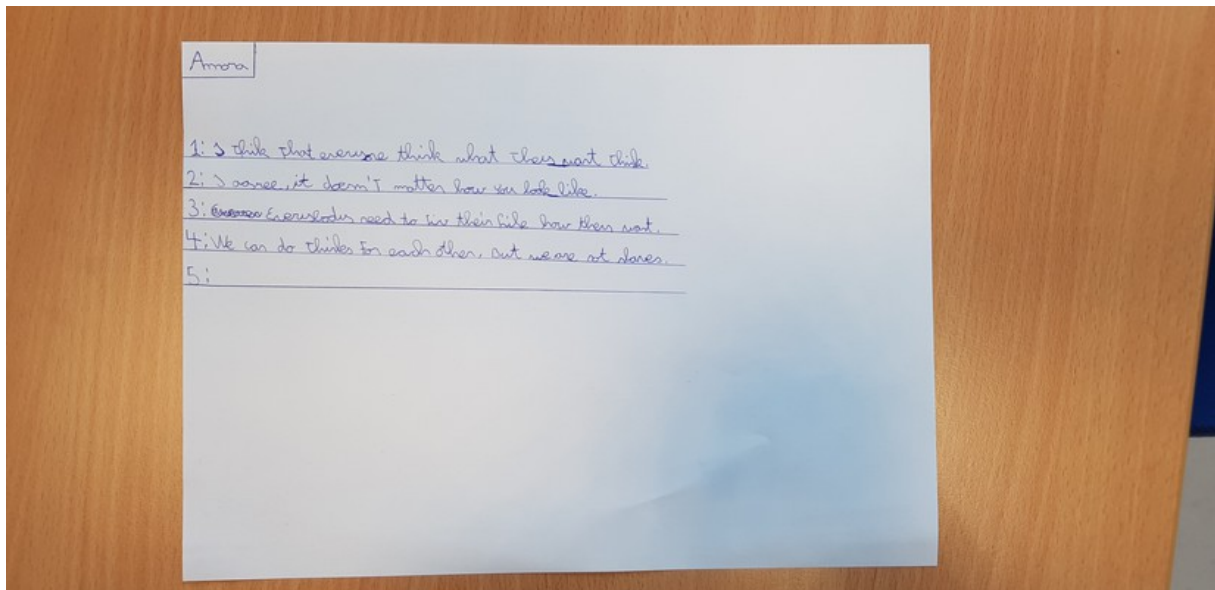 Amora
1: I thik that everyone think what they want think.
2: I agree, it doesn't matter how you look like.
3: Everybody need to liv their life how they want.
4: We can do thinks for each other, but we are not slaves.
5: